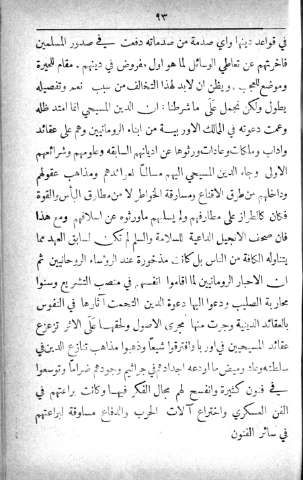 ٩٣
في قواعد دينها واي صدمة من صدماته دفعت في صدور المسلمين
فاخرتهم عن تعاطي الوسائل لما هو اول مفروض في دينهم. مقام للحيرة
وموضع للعجب. ويظن ان لابد لهذا التخالف من سبب نعم وتفصيله
يطول ولكن نجمل على ما شرطنا: ان الدين المسيحي انما امتد ظله
وعمت دعوته في الممالك الاوربية من ابناء الرومانيين وهم على عقائد
واداب وملكات وعادات ورثوها عن اديانهم السابقه وعلومهم وشرائعهم
الاولى وجاء الدين المسيحي اليهم مسالماً لعوائدهم ومذاهب عقولهم
وداخلهم من طرق الاقناع ومسارقة الخواطر لا من مطارق البأس والقوة
فكان كالطراز على مطارفهم ولم يسلبهم ماورثوه عن اسلافهم ومع هذا
فان صحف الانجيل الداعية للسلامة والسلم لم تكن لسابق العهد مما
يتناوله الكافة من الناس بل كانت مذخورة عند الرؤساء الروحانيين ثم
ان الاحبار الرومانيين لما اقاموا انفسهم في منصب التشريع وسنوا
محاربة الصليب ودعوا اليها دعوة الدين التحمت آثارها في النفوس
بالعقائد الدينية وجرت منها مجرى الاصول ولحقها على الاثر تزعزع
عقائد المسيحيين في اوربا وافترقوا شيعاً وذهبوا مذاهب تنازع الدين في
سلطته وعاد وميض ما اودعه اجدادهم في جراثيم وجودهم ضراماً وتوسعوا
في فنون كثيرة وانفسح لهم مجال الفكر فيها وكانت براعتهم في
الفن العسكري واختراع آلات الحرب والدفاع مساوقة لبراعتهم
في سائر الفنون